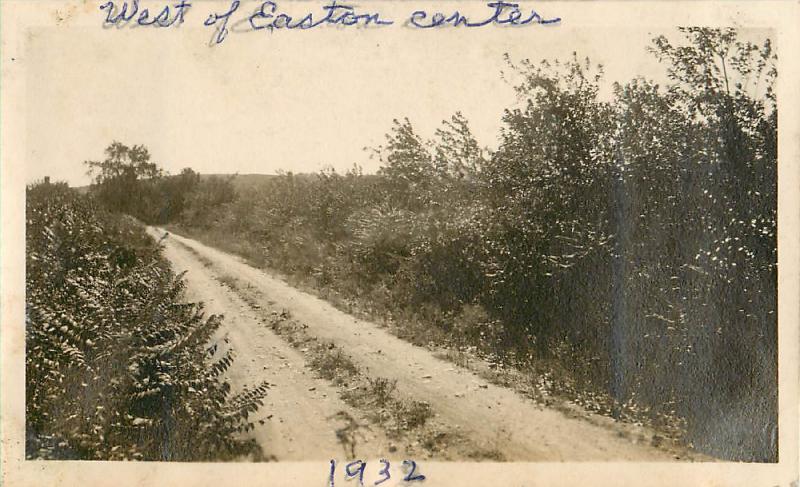 West of Easton center
1932